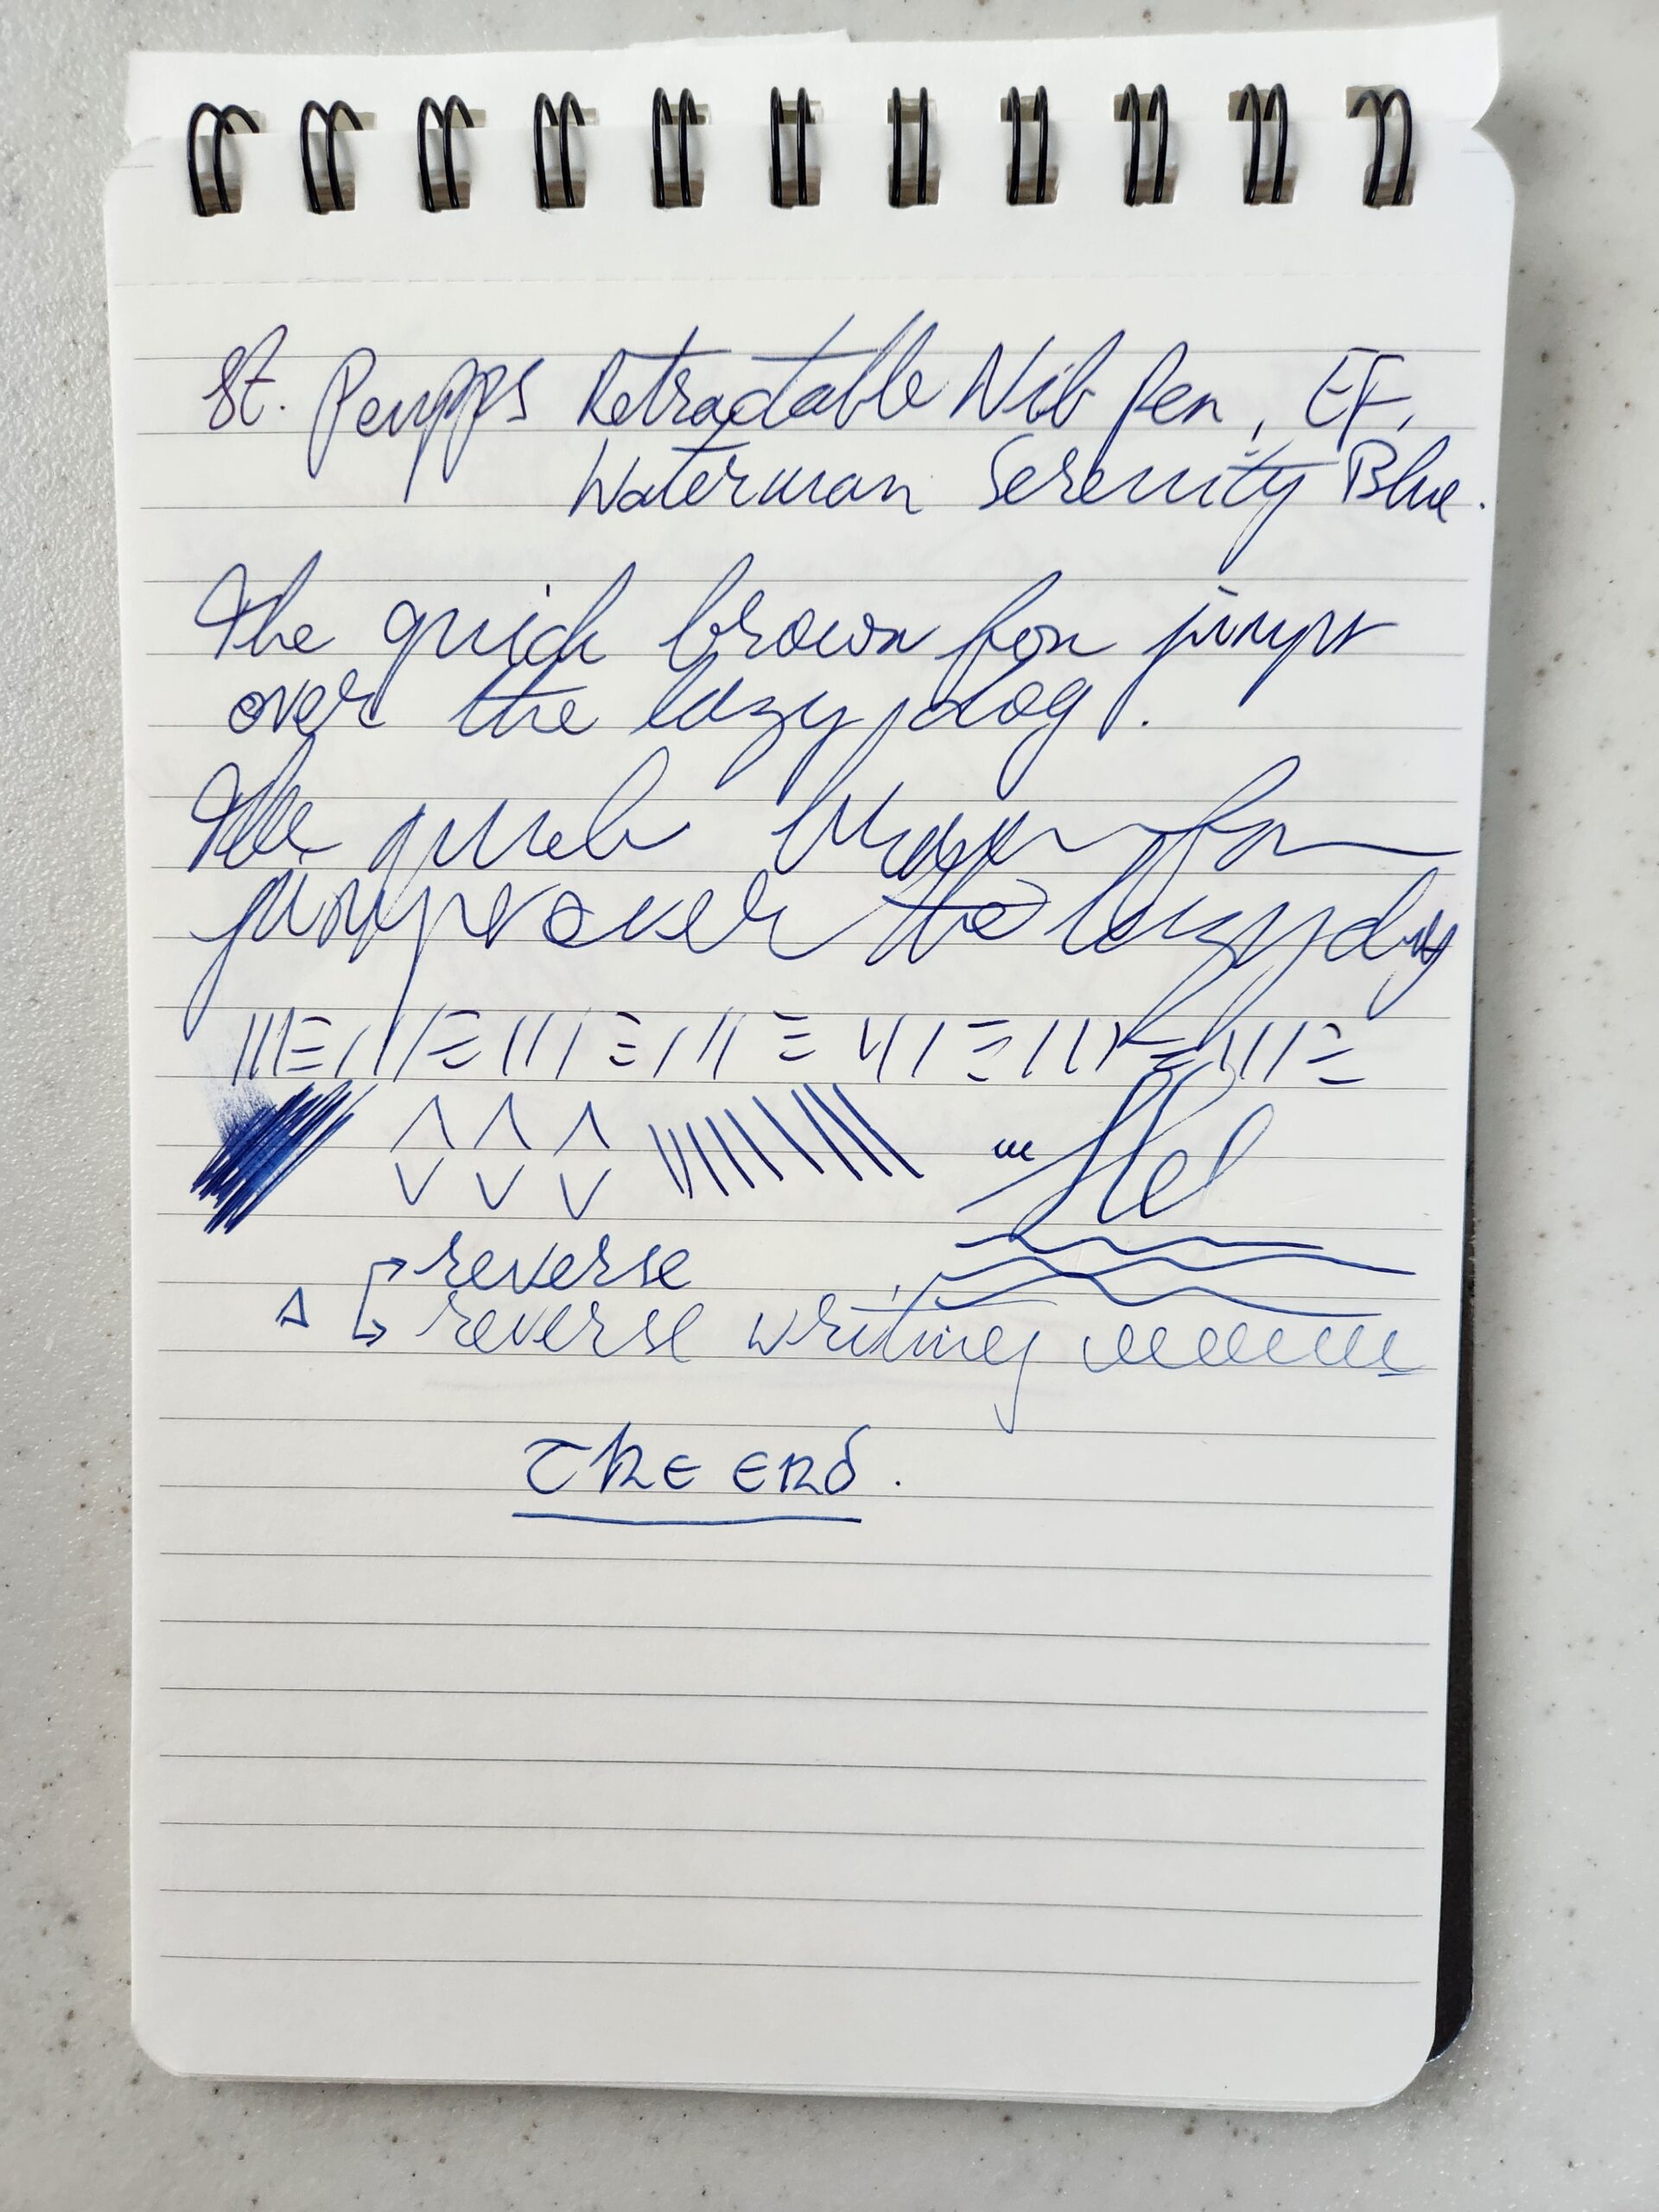 St. Penpps Retractable Nib Pen, EF,
Waterman Serenity Blue.
The quick brown fox jumps
over the lazy dog.
The quick brown fox
jumps over the lazy dog
reverse
reverse writing
The End.